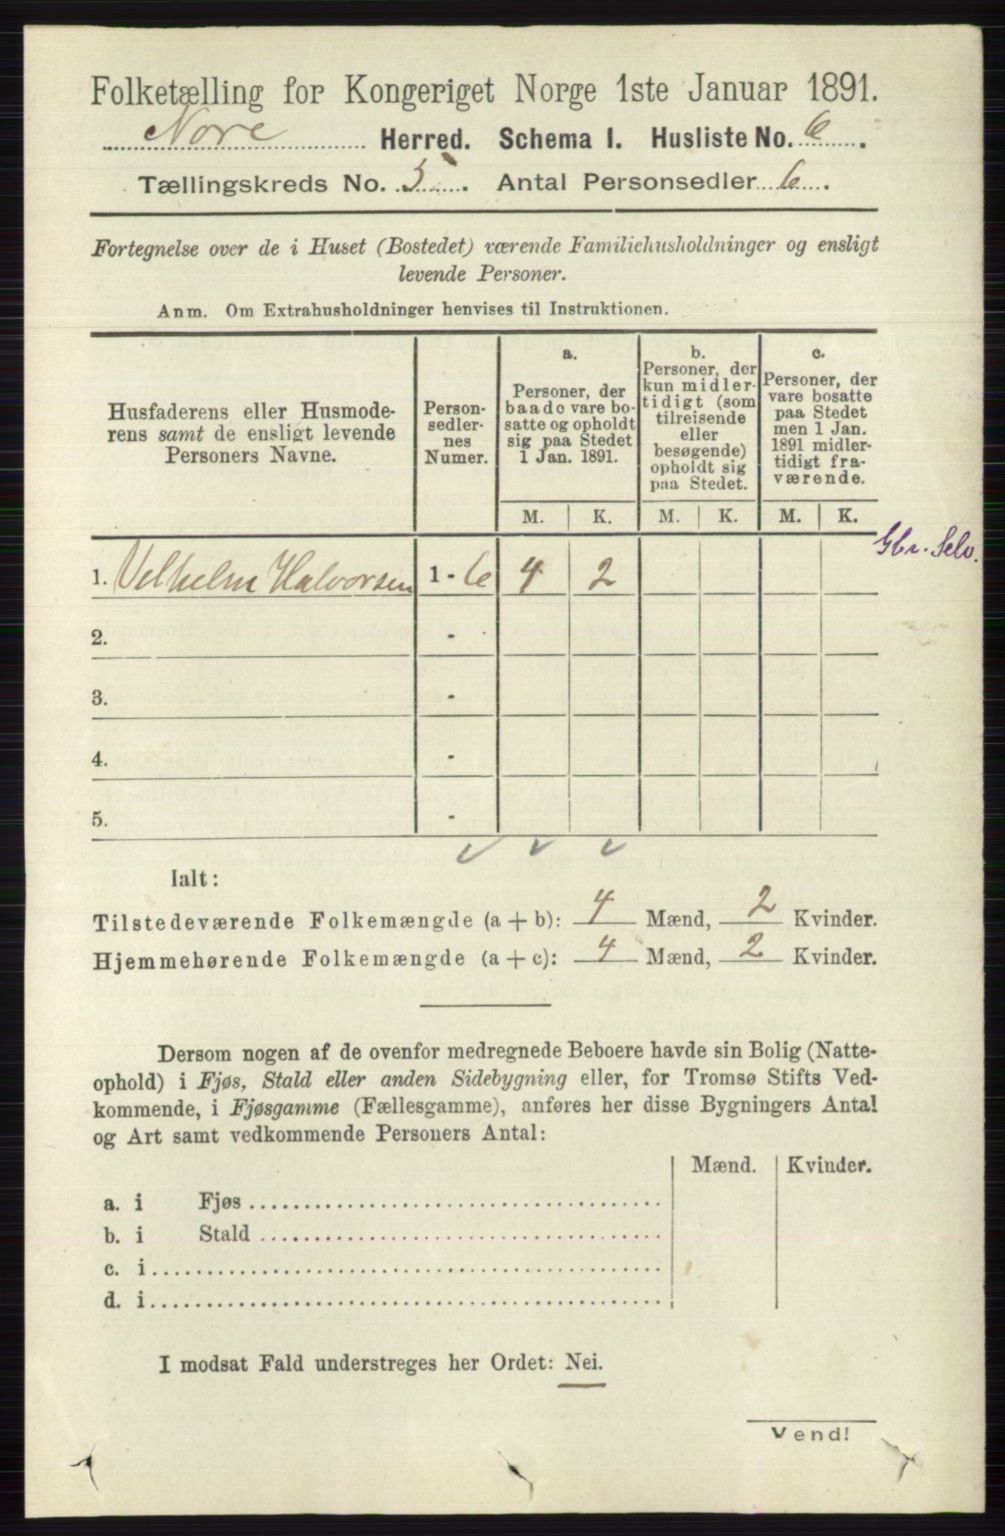 Folketælling for Kongeriget Norge 1ste Januar 1891.
Nore Herred. Schema I. Husliste No. 6.
Tællingskreds No. 5. Antal Personsedler 6.
Fortegnelse over de i Huset (Bostedet) værende Familiehusholdninger og ensligt
levende Personer.
Anm. Om Extrahusholdninger henvises til Instruktionen.
Husfaderens eller Husmode-
rens samt de ensligt levende
Personers Navne.
Person-
sedler-
nes
Numer.
a.
Personer, der
baade vare bo-
satte og opholdt
sig paa Stedet
1 Jan. 1891.
b.
Personer, der
kun midler-
tidigt (som
tilreisende
eller
besøgende)
opholdt sig
paa Stedet.
c.
Personer, der
vare bosatte
paa Stedet
men 1 Jan.
1891 midler-
tidigt fra-
værende.
M. K. M. K. M. K.
Gbr. Selv.
1. Velhelm Halvorsen 1 - 6 4 2
2. -
3. -
4. -
5. -
Ialt:
Tilstedeværende Folkemængde (a + b): 4 Mænd, 2 Kvinder.
Hjemmehørende Folkemængde (a + c): 4 Mænd, 2 Kvinder.
Dersom nogen af de ovenfor medregnede Beboere havde sin Bolig (Natte-
ophold) i Fjøs, Stald eller anden Sidebygning eller, for Tromsø Stifts Ved-
kommende, i Fjøsgamme (Fællesgamme), anføres her disse Bygningers Antal
og Art samt vedkommende Personers Antal:
Mænd. Kvinder.
a. i Fjøs
b. i Stald
c. i
d. i
I modsat Fald understreges her Ordet: Nei.
Vend!